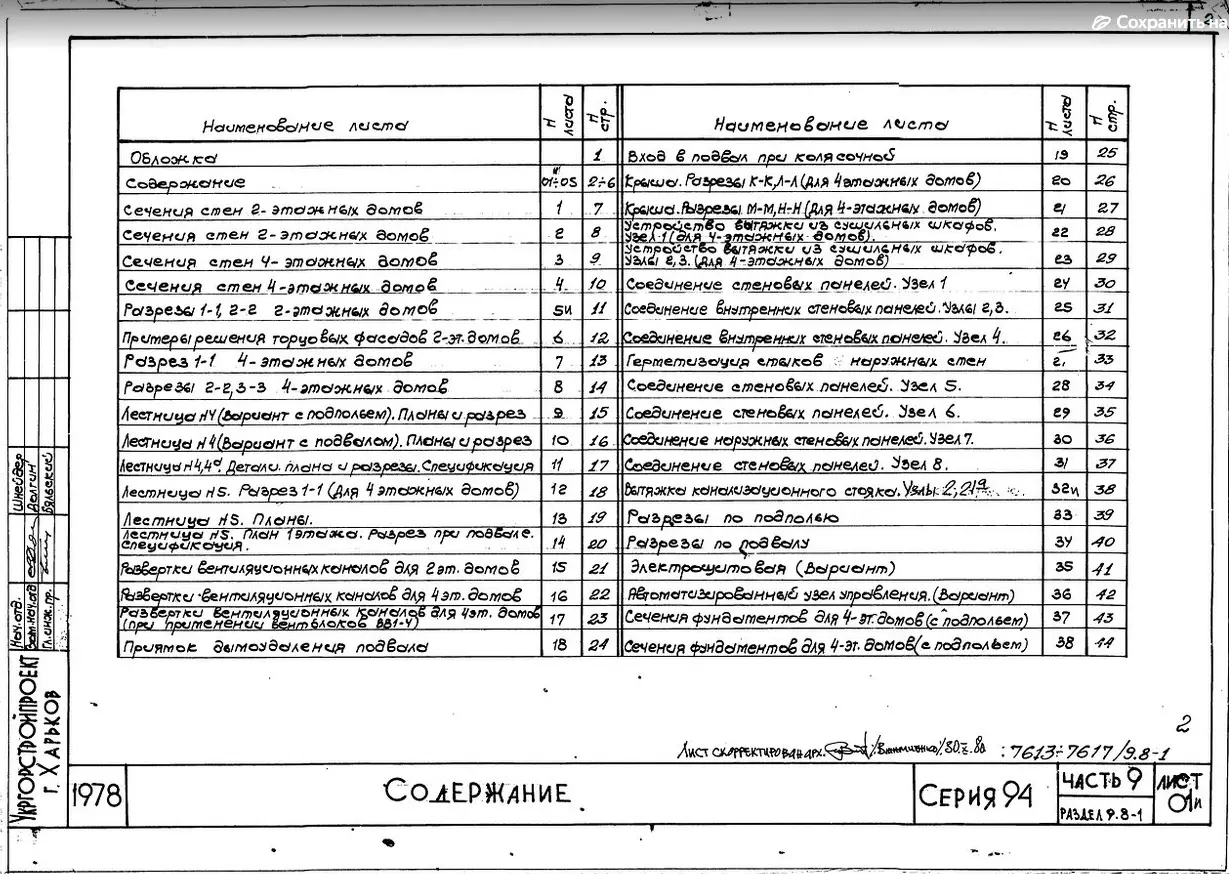 Сохранить на
Наименование листа N листа N стр.
Обложка 1
Содержание 01÷05 2÷6
Сечения стен 2-этажных домов 1 7
Сечения стен 2-этажных домов 2 8
Сечения стен 4-этажных домов 3 9
Сечения стен 4-этажных домов 4 10
Разрезы 1-1, 2-2 2-этажных домов 5и 11
Примеры решения торцовых фасадов 2-эт. домов 6 12
Разрез 1-1 4-этажных домов 7 13
Разрезы 2-2, 3-3 4-этажных домов 8 14
Лестница N4 (вариант с подпольем). Планы и разрез 9 15
Лестница N4 (вариант с подвалом). Планы и разрез 10 16
Лестница N4,4а. Детали плана и разрезы. Спецификация 11 17
Лестница N5. Разрез 1-1 (для 4 этажных домов) 12 18
Лестница N5. Планы. 13 19
Лестница N5. План 1 этажа. Разрез при подвале.
Спецификация. 14 20
Развертки вентиляционных каналов для 2 эт. домов 15 21
Развертки вентиляционных каналов для 4 эт. домов 16 22
Развертки вентиляционных каналов для 4 эт. домов
(при применении вентблоков ВВ1-4) 17 23
Приямок дымоудаления подвала 18 24
Наименование листа N листа N стр.
Вход в подвал при колясочной 19 25
Крыша. Разрезы К-К, Л-Л (для 4 этажных домов) 20 26
Крыша. Разрезы М-М, Н-Н (для 4-этажных домов) 21 27
Устройство вытяжки из сушильных шкафов.
Узел 1 (для 4-этажных домов). 22 28
Устройство вытяжки из сушильных шкафов.
Узлы 2, 3. (для 4-этажных домов) 23 29
Соединение стеновых панелей. Узел 1 24 30
Соединение внутренних стеновых панелей. Узлы 2, 3. 25 31
Соединение внутренних стеновых панелей. Узел 4. 26 32
Герметизация стыков наружных стен 33
Соединение стеновых панелей. Узел 5. 28 34
Соединение стеновых панелей. Узел 6. 29 35
Соединение наружных стеновых панелей. Узел 7. 30 36
Соединение стеновых панелей. Узел 8. 31 37
Вытяжка канализационного стояка. Узлы 2, 2а 32и 38
Разрезы по подполью 33 39
Разрезы по подвалу 34 40
Электрощитовая (вариант) 35 41
Автоматизированный узел управления. (Вариант) 36 42
Сечения фундаментов для 4-эт. домов (с подпольем) 37 43
Сечения фундаментов для 4-эт. домов (с подпольем) 38 44
Нач. отд. Шнейдер
Зам. нач. отд. Долгин
Гл. инж. пр.
Укргорстройпроект
г. Харьков
2
Лист скорректирован арх.
: 7613÷7617/9.8-1
1978 Содержание. Серия 94 Часть 9 Лист
Раздел 9.8-1 01и